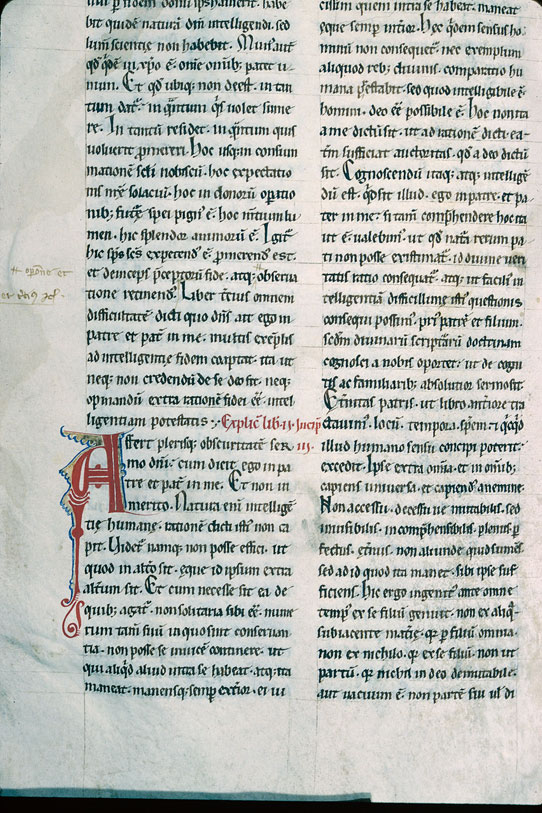 bit quidem naturam dni intelligendi, sed
lumen scientie non habebit. Munus aut
qd qdē in xpo ē. omne omnib; patet u-
num. Et qd ubiq; non deest. in tan
tum datr. in qntum qs uolet sume
re. In tantū residet. in qntum quis
uoluerit pmereri. hoc usq; in consum
mationē scli nobiscū. hoc expectatio
nis nrē solaciū. hoc in donorū opatio
nib; future spei pign' ē. hoc mtium lu
men. hic splendor animorū ē. Igit
hic sps scs expetend' ē. pmerend' est.
et deinceps pceptorū fide. atq; obserua
tione retinend'. Liber tcius omnem
difficultatē dicti quo dns ait ego in
patre et pat in me. multis exēplis
ad intelligentie fidem coaptat. ita ut
neq; non credendū de se deo sit. neq;
opinandū extra rationē fidei ēē intel
ligentiam potestatis. Explic lib. ii. Incip
iii.
Affert plerisq; obscuritatē ser
mo dni. cum dicit ego in pa
tre et pat in me. Et non in
merito. Natura eni intelligē
tie humane. rationē dicti isti' non ca
pit. Videt' namq; non posse effici. ut
quod in alto sit. eque id ipsum extra
altum sit. Et cum necesse sit ea de
quib; agat'. non solitaria sibi ēē. nume
rum tam suū in quo sunt conseruan
tia. non posse se inuice continere. ut
qui aliqd aliud intra se habeat. atq; ita
maneat. manensq; semp extior. ei ui
cissim quem intra se habeat. maneat
eque semp intior. hec qdem sensus ho
minū non consequet'. nec exemplum
aliquod reb; diuinis. compatio hu
mana pstabit. sed quod intelligibile ē
homini. deo ēē possibile ē. hoc non ita
a me dictū sit. ut ad rationē dicti ea-
tm sufficiat auctoritas. qd a deo dictū
sit. Cognoscendū itaq; atq; intelligē
dū est. qd sit illud. ego in patre. et pa
ter in me. si tam comphendere hoc ita
ut ē ualebim'. ut qd natā rerum pa
ti non posse existimat'. id diuine ueri
tatis ratio consequat'. atq; ut facili' in
telligentiā difficillime isti' questionis
consequi possim'. pri' patrē et filium.
scdm diuinarū scriptārū doctrinam
cognosci a nobis oportet. ut de cogni
tis ac familiarib; absolutior sermo sit.
Etnitas patris. ut libro antiore tra
ctauim'. locū. tempora. spēm. et qcqd
illud humano sensu concipi poterit.
excedit. Ipse extra omia. et in omib;
capiens uniuersa. et capiend' a nemine.
Non accessu. decessu ue mutabilis. sed
inuisibilis. incomphensibilis. plenus. p
fectus. etnus. non aliunde quid sumēs
sed ad id quod ita manet. sibi ipse suf
ficiens. hic ergo ingenit' ante omne
temp' ex se filiū genuit. non ex aliq
subiacente matie. qr p filiū omnia.
non ex nichilo. qr ex se filiū. non ut
partū. qr nichil in deo demutabile.
aut uacuum ē. non partē sui ul' di